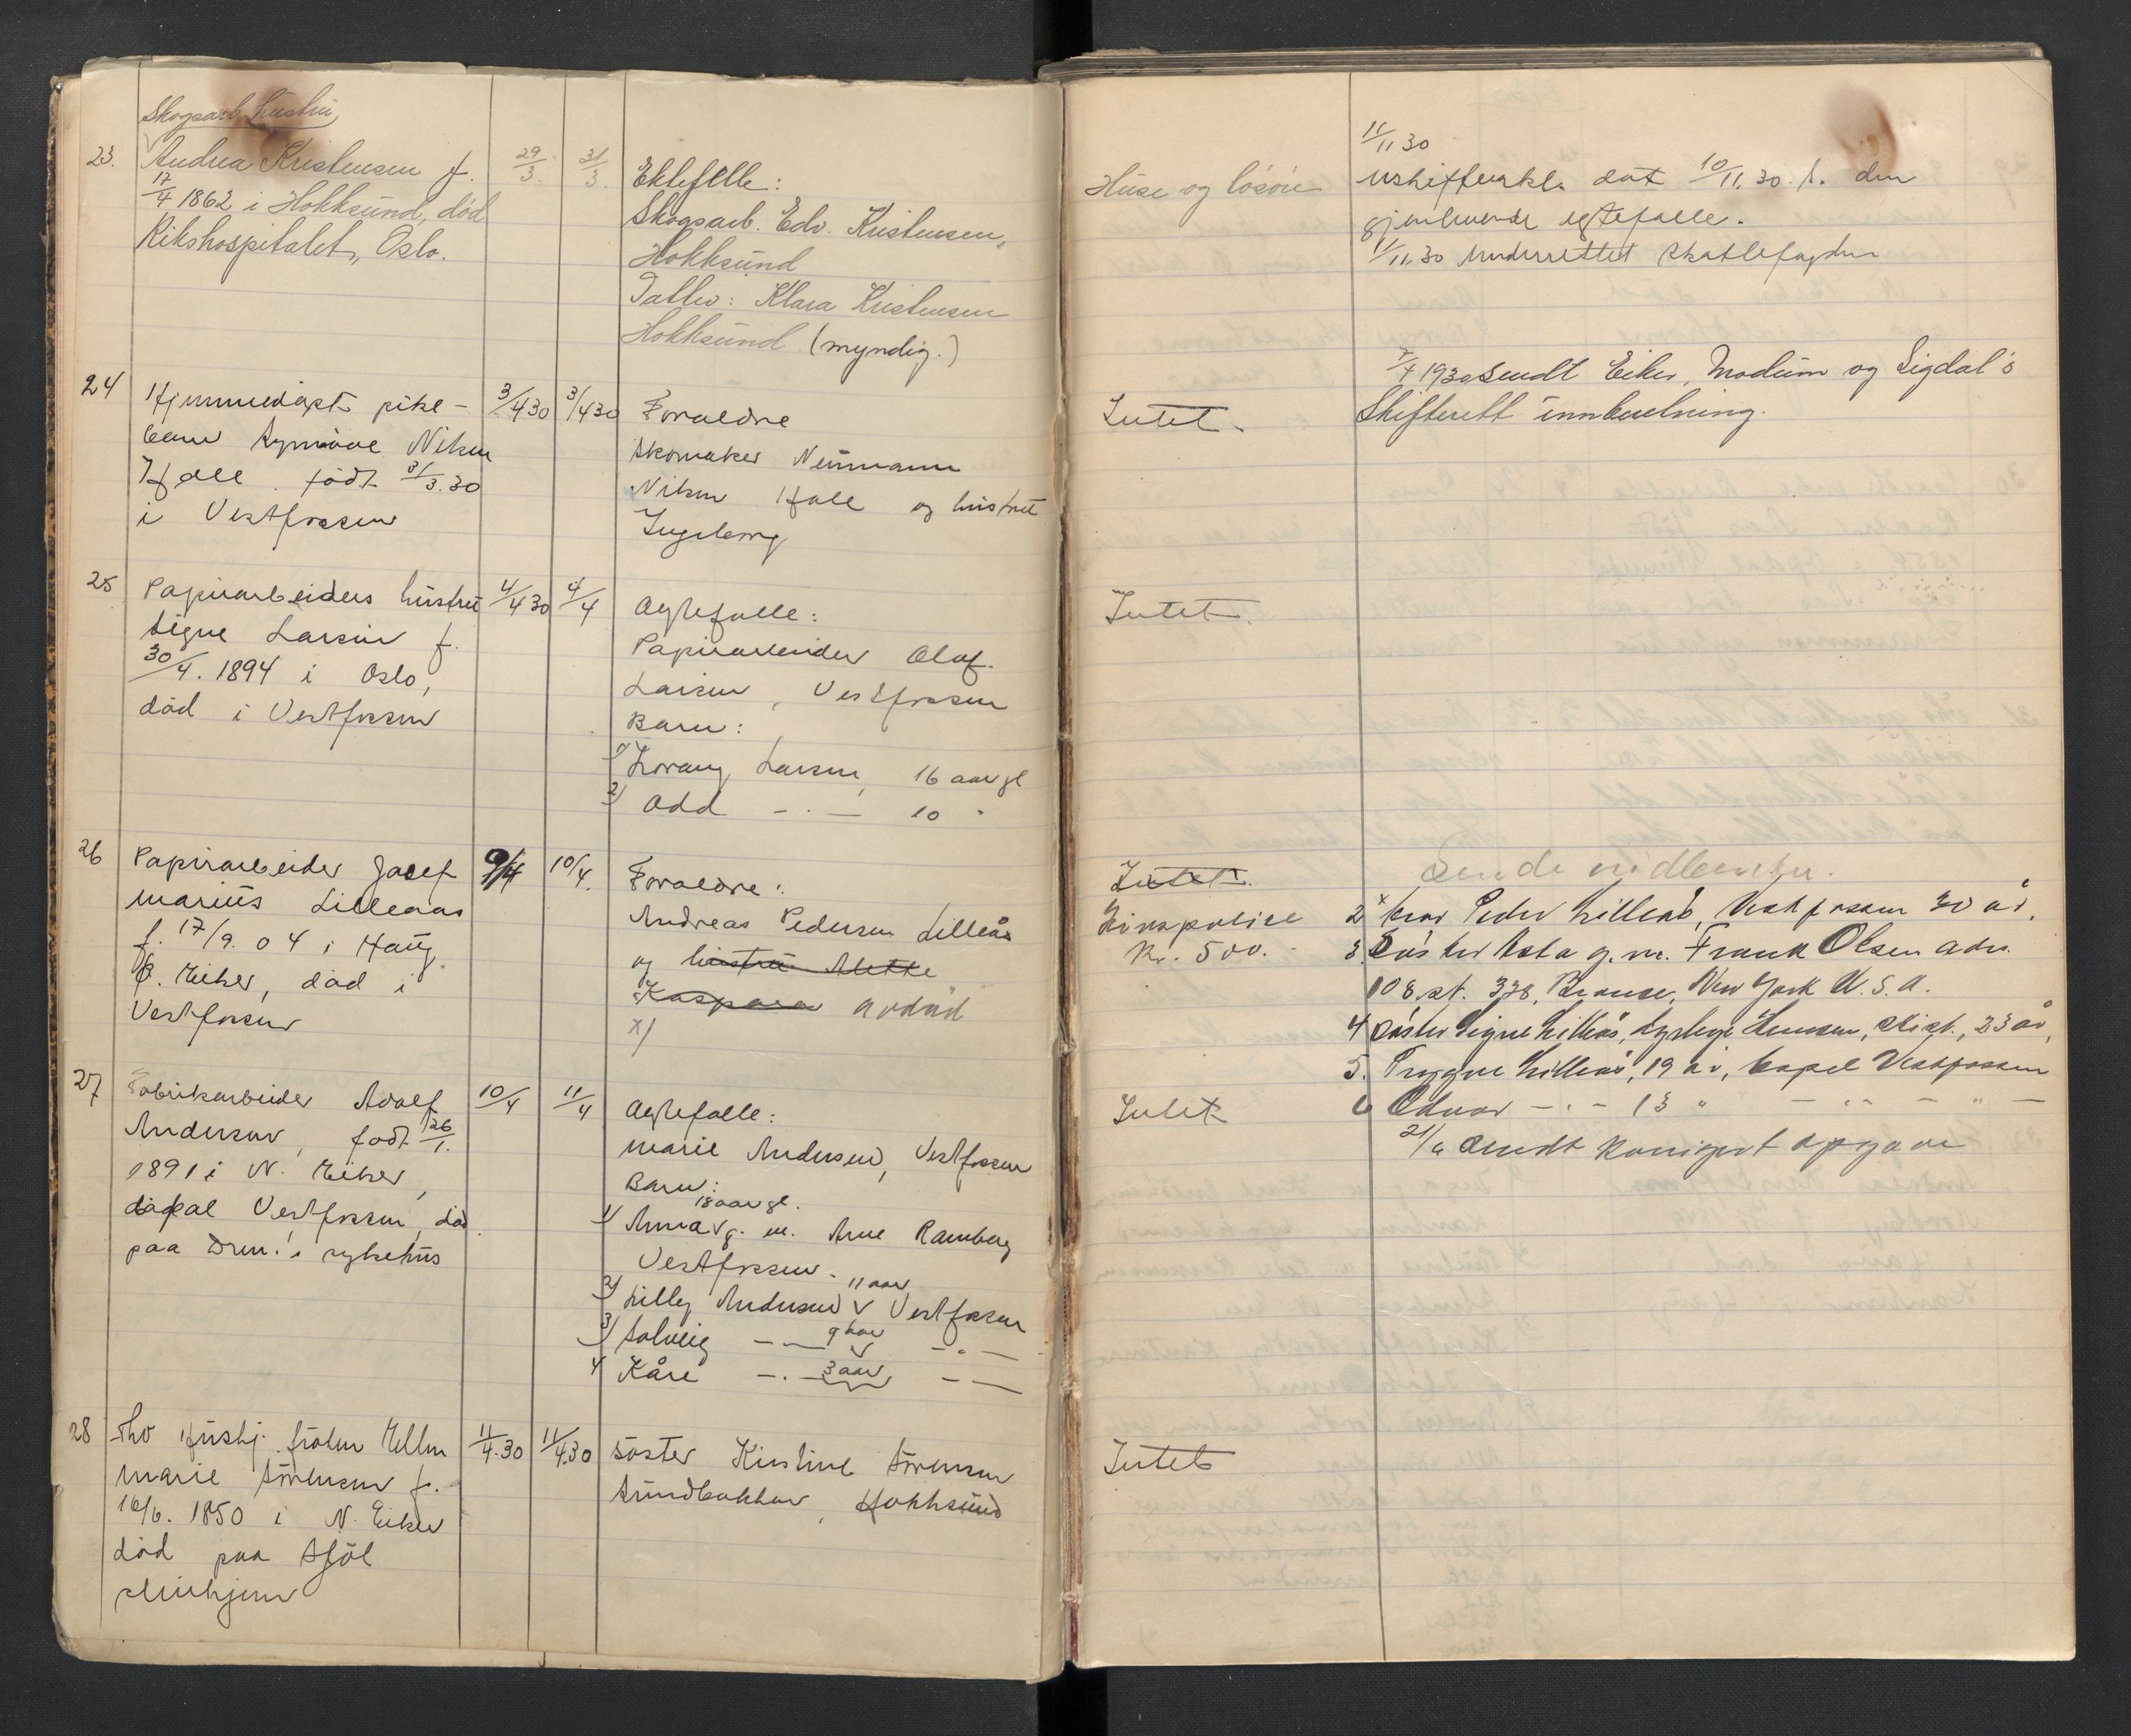 Skogsarb. hustru
23. Andrea Kristensen f. 29/3. 31/3.
17/4 1862 i Hokksund, død
Rikshospitalet, Oslo.
Ektefelle:
Skogsarb. Edv. Kristensen,
Hokksund
Datter: Klara Kristensen
Hokksund (myndig.)
Huse og løsøre
11/11 30
uskifteerkl. dat 10/11.30. f. den
gjenlevende egtefælle.
11/11.30 Underrettet skattefogden
24 Hjemmedøpt pike- 3/4 30 3/4 30
barn Synnøve Nilsen
Hjelle født 31/3.30
i Vestfossen
Foræeldre
Skomaker Neumann
Nilsen Hjelle og hustru
Ingeborg
Intet.
7/4 1930 sendt Eiker, Modum og Sigdal's
Skifterett innberetning.
25 Papirarbeiders hustru 4/4 30 4/4
Signe Larsen f.
30/4. 1894 i Oslo,
død i Vestfossen
Ægtefælle:
Papirarbeider Olaf
Larsen, Vestfossen
Barn:
1) Larsen, 16 aar gl
2) Odd — . — 10 "
Intet.
26 Papirarbeider Josef 9/4 10/4.
Marius Lilleaas
f. 17/9. 04 i Haug
Ø. Eiker, død i
Vestfossen
Foræeldre:
Andreas Pedersen Lilleås
og hustru Alette
Kaspara avdød
x)
Intet.
Livspolise
Kr. 500.-
Sende
2x bror Peder Lilleås, Vestfossen 30 år.
3. Søster Asta g. m. Frank Olsen adr.
108 st. 328, New York U.S.A.
4 Søster Signe Lilleås, Hansen, 23 år,
5. Trygve Lilleås, 19 år, Vestfossen
6 Edvar — . — 13 " — " — " —
21/ sendt opgave
27 Fabrikarbeider Adolf 10/4 11/4
Andersen, født 26/1.
1891 i N. Eiker,
Vestfossen, død
paa Drm.'s sykehus
Ægtefælle:
Marie Andersen, Vestfossen
Barn:
18 aar gl.
1) Anna v g. m. Arne Ramberg
Vestfossen.
11 aar
2) Lilly Andersen v Vestfossen
3) Solveig — — 9 aar v — " —
4 Kåre — . — 3 aar — —
Intet
28 Fhv Hushj. frøken Ellen 11/4.30 11/4.30
Marie Sørensen f.
16/6. 1850 i N. Eiker
død paa
Søster Kirstine Sørensen
Sundbakken, Hokksund
Intet